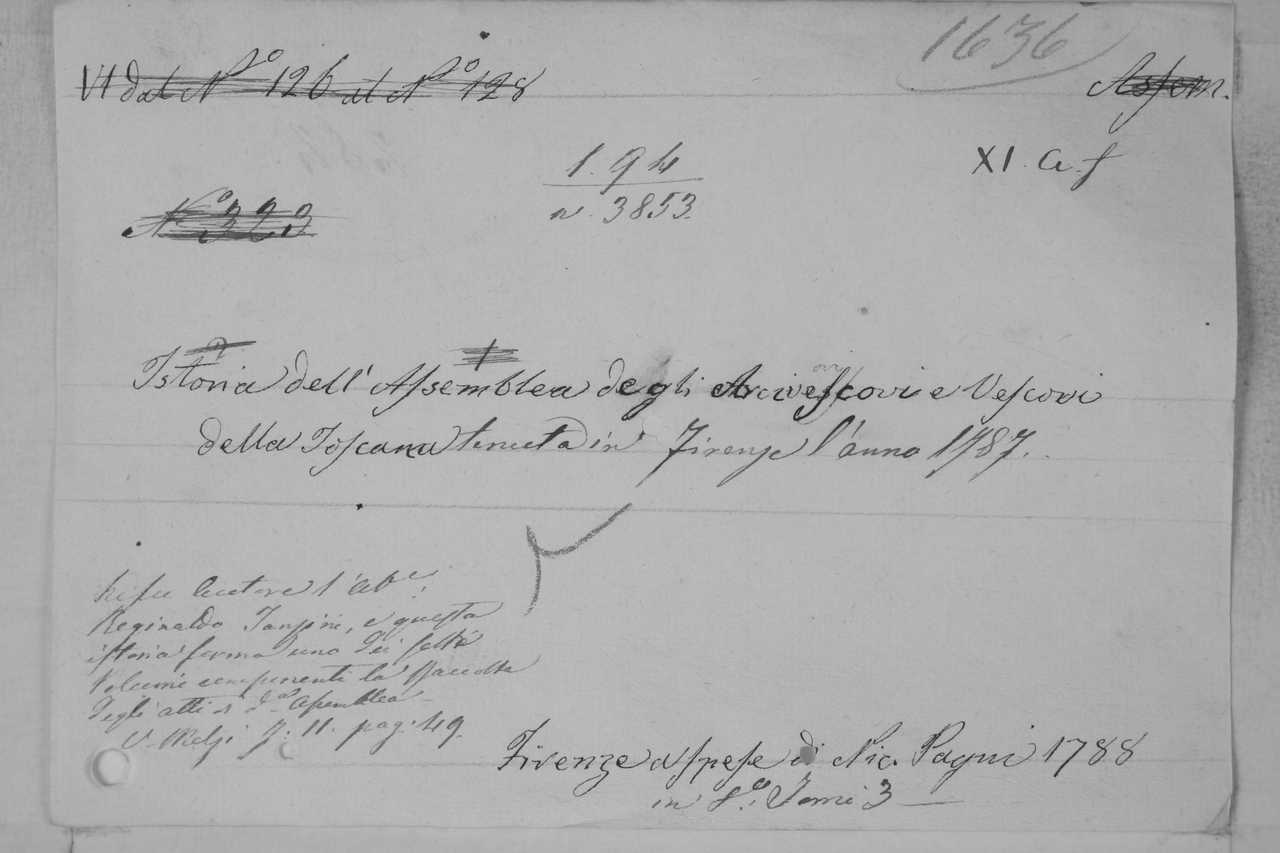 1636
VI dal Nº 126 al Nº 128
Assem.
XI. a. f
1. 94
n. 3853.
Nº 323
Istoria dell' Assemblea degli Arcivescovi e Vescovi
della Toscana tenuta in Firenze l'anno 1787.
Ne fu Autore l'Abe:
Reginaldo Tanzini, e questa
istoria forma uno dei sette
Volumi componenti la Raccolta
degli atti di da Assemblea
V. Melzi T: II. pag: 49.
Firenze a spese di Nic. Pagni 1788
in 8º: Tomi 3